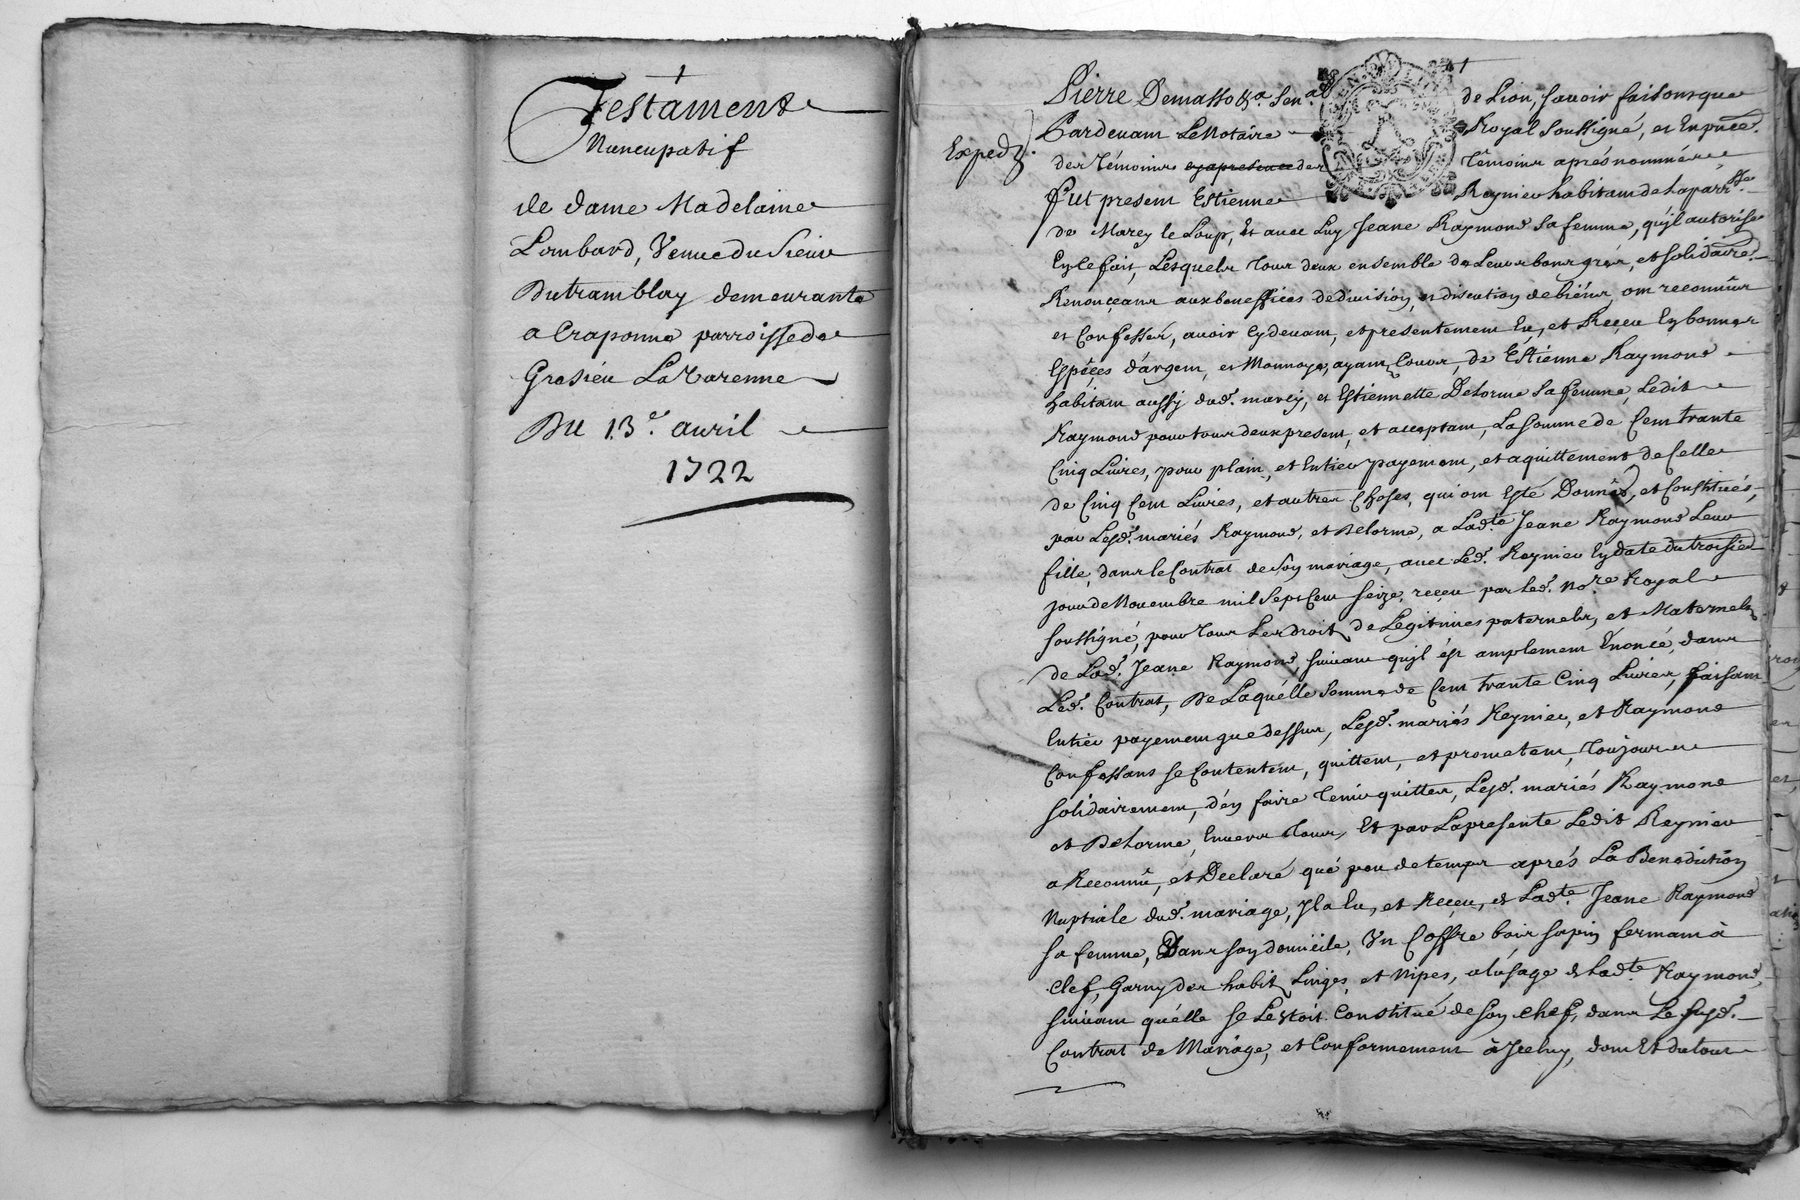 Testament
Nuncupatif
de dame Madelaine
Lombard, Veuve du Sieur
Dutramblay demeurante
a Craponne parroisse de
Gresieu La Varenne
Du 13.e avril
1722
Exped.
Pierre Demasso &a Sen.al de Lion, scavoir faisons que
Pardevant Le Notaire Royal soussigné, et En pnce.
des Témoins en presence des Témoins aprés nommés,
fut present Estienne Reynieu habitant de La parr.sse
de Marcy le Loup, Et avec Luy Jeane Raymond sa femme, qu'jl autorise
En le fait, Lesquels Tous deux ensemble de Leurs bons grés, et solidaire.
Renonçeans aux beneffices de division, et discution de biéns, ont reconnûs
et Confessés, avoir Cydevant, et presentement Eu, et Reçeu En bonnes
Espêces d'argent, et Monnoye, ayant Cours, de Estienne Raymond
habitant aussy dud. marcy, et Estiennette Delorme sa femme, Ledit
Raymond pour tous deux present, et acceptant, La somme de Cent trante
Cinq Livres, pour plain, et Entier payement, et aquittement de Celle
de Cinq Cent Livres, et autres Choses, qui ont Esté Donnés, et Constitués,
par Lesd. mariés Raymond, et Delorme, a Lad.te Jeane Raymond Leur
fille, dans le Contrat de son mariage, avec Led. Reynieu En date du troisiè.
jour de Novembre mil sept Cent seize, reçeu par Led. No.re Royal
soussigné, pour Tous Les droits de Legitimes paternels, et Maternels
de Lad. Jeane Raymond, suivant qu'jl ést amplement Enoncé, dans
Led. Contrat, De Laquélle somme de Cent trante Cinq Livres, faisant
Entier payement que dessus, Lesd. mariés Reynieu, et Raymond
Confessans se Contentent, quittent, et prometent, Toujours
solidairement, d'en faire Tenir quittes, Lesd. mariés Raymond
et Delorme, Envers Tous, Et par La presente Ledit Reynieu
a Reconnû, et Declaré qué peu de temps aprés La Benediction
Nuptiale dud. mariage, Jl a Eu, et Reçeu, de Lad.te Jeane Raymond
sa femme, Dans son domiçile, Un Coffre bois sapin fermant à
Clef, Garny des habits Linges, et Nipes, a Lusage de Lad.te Raymond,
suivant quélle se Lestoit Constitué de son chef, dans Le susd.
Contrat de Mariage, et Conformement à Jceluy, dont Et du tout